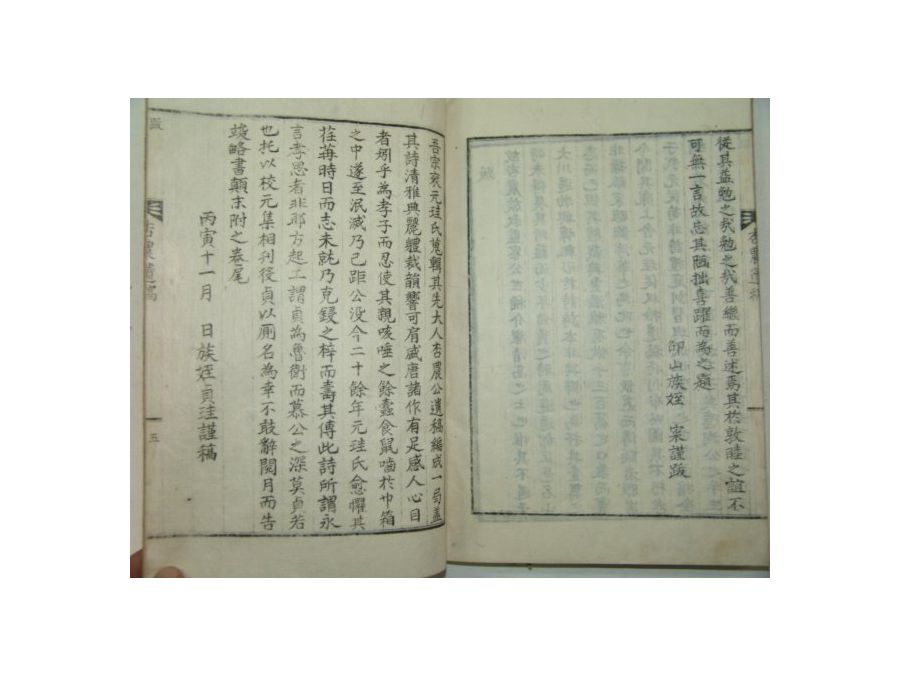 從其益勉之哉勉之哉善繼而善述焉其於敦睦之誼不
可無一言故忘其陋拙喜躍而為之題
卬山族姪 寀謹跋
杏農遺稿
吾宗寀元珪氏蒐輯其先大人杏農公遺稿編成一局盖
其詩清雅典麗體裁韻響可肩盛唐諸作有足感人心目
者矧乎為孝子而忍使其親咳唾之餘蠹食鼠嚙於巾箱
之中遂至泯滅乃已距公没今二十餘年元珪氏愈懼其
荏苒時日而志未就乃克鋟之梓而壽其傳此詩所謂永
言孝思者非耶方起工謂貞為魯衛而慕公之深莫貞若
也托以校元集相刋後貞以厠名為幸不敢辭閱月而告
竣略書顛末附之卷尾
丙寅十一月 日族姪貞珪謹稿
跋
杏農遺稿
五